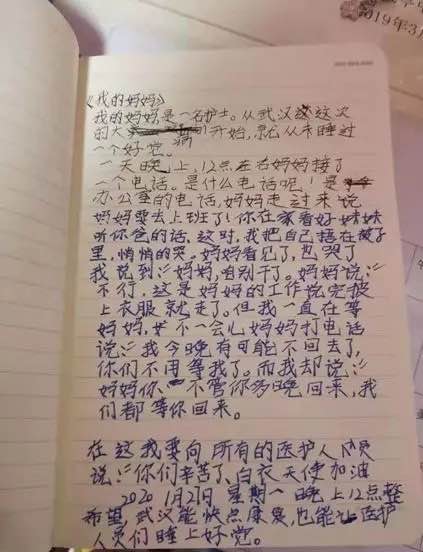 2019年3
《我的妈妈》
我的妈妈是一名护士。从武汉这次
的大病开始,就从未睡过
一个好觉。
一天晚上,12点左右妈妈接了
一个电话。是什么电话呢!是
办公室的电话,妈妈走过来说
妈妈要去上班了!你在家看好妹妹
听你爸的话,这时,我把自己捂在被子
里,悄悄的哭。妈妈看见了,也哭了
我说到:“妈妈,咱别干了。妈妈说:“
不行,这是妈妈的工作说完披
上衣服就走了。但我一直在等
妈妈,不一会儿妈妈打电话
说:“我今晚有可能不回去了,
你们不用等我了。而我却说:“
妈妈你不管你多晚回来,我
们都等你回来。
在这我要向所有的医护人员
说:“你们辛苦了,白衣天使加油
2020 1月21日 星期一晚上12点整
希望,武汉能快点康复,也能让医护
人员们睡上好觉。